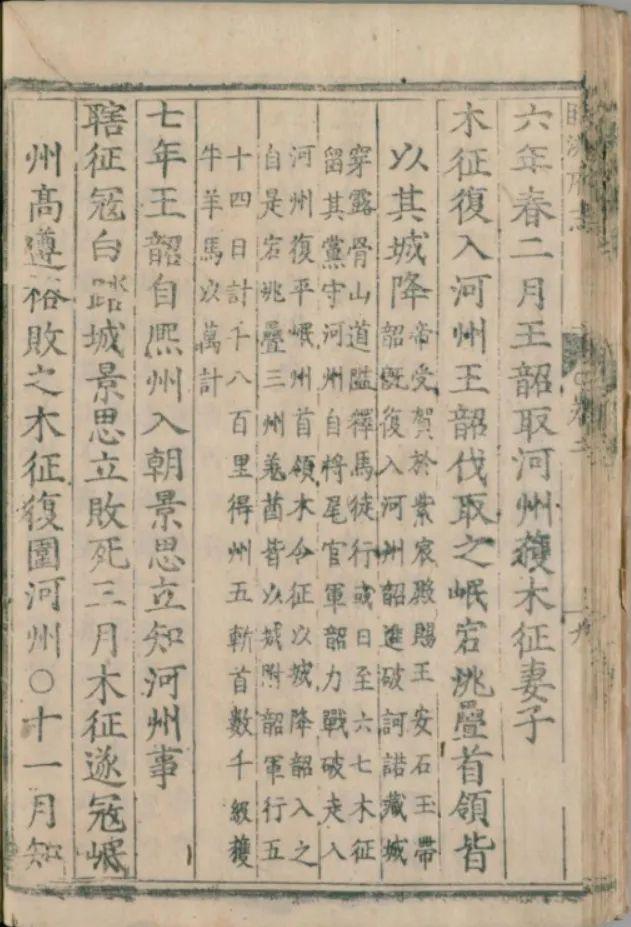 六年春二月王韶取河州獲木征妻子
木征復入河州王韶伐取之岷宕洮疊首領皆
以其城降
帝受賀於紫宸殿賜王安石玉帶
韶旣復入河州韶進破訶諾藏城
穿露骨山道隘釋馬徒行或日至六七木征
留其黨守河州自將尾官軍韶力戰破走入
河州復平岷州首領木令征以城降韶入之
自是宕洮疊三州羌酋皆以城附韶軍行五
十四日計千八百里得州五斬首數千級獲
牛羊馬以萬計
七年王韶自熈州入朝景思立知河州事
瞎征冦白踏城景思立敗死三月木征遂冦岷
州高遵裕敗之木征復圍河州○十一月知